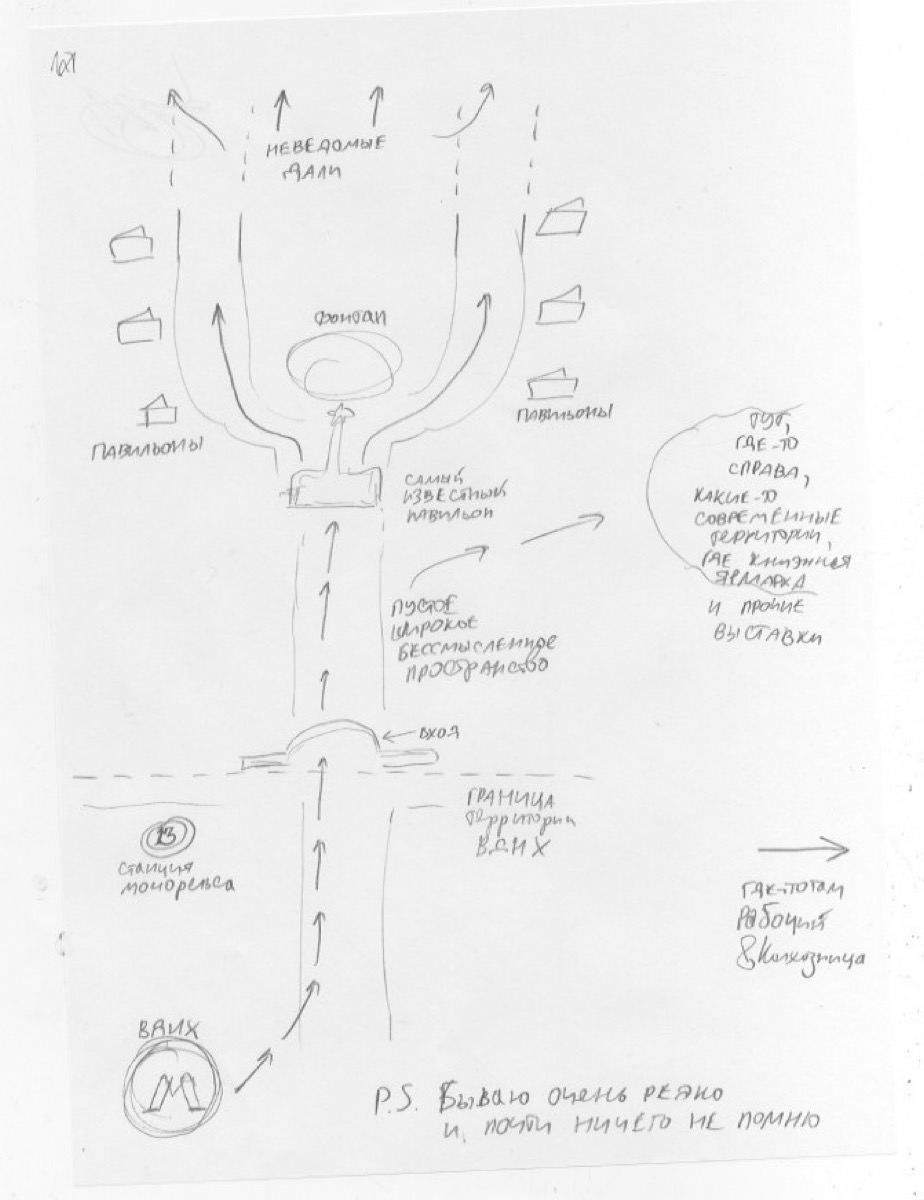 НЕВЕДОМЫЕ
ДАЛИ
ФОНТАН
ПАВИЛЬОНЫ
ПАВИЛЬОНЫ
САМЫЙ
ИЗВЕСТНЫЙ
ПАВИЛЬОН
ТУТ,
ГДЕ-ТО
СПРАВА,
КАКИЕ-ТО
СОВРЕМЕННЫЕ
ТЕРРИТОРИИ,
ГДЕ КНИЖНАЯ
ЯРМАРКА
И ПРОЧИЕ
ВЫСТАВКИ
ПУСТОЕ
ШИРОКОЕ
БЕССМЫСЛЕННОЕ
ПРОСТРАНСТВО
ВХОД
ГРАНИЦА
ТЕРРИТОРИИ
ВДНХ
13
СТАНЦИЯ
МОНОРЕЛЬСА
ГДЕ-ТО ТАМ
РАБОЧИЙ
& Колхозница
ВДНХ
М
P.S. БЫВАЮ ОЧЕНЬ РЕДКО
И ПОЧТИ НИЧЕГО НЕ ПОМНЮ